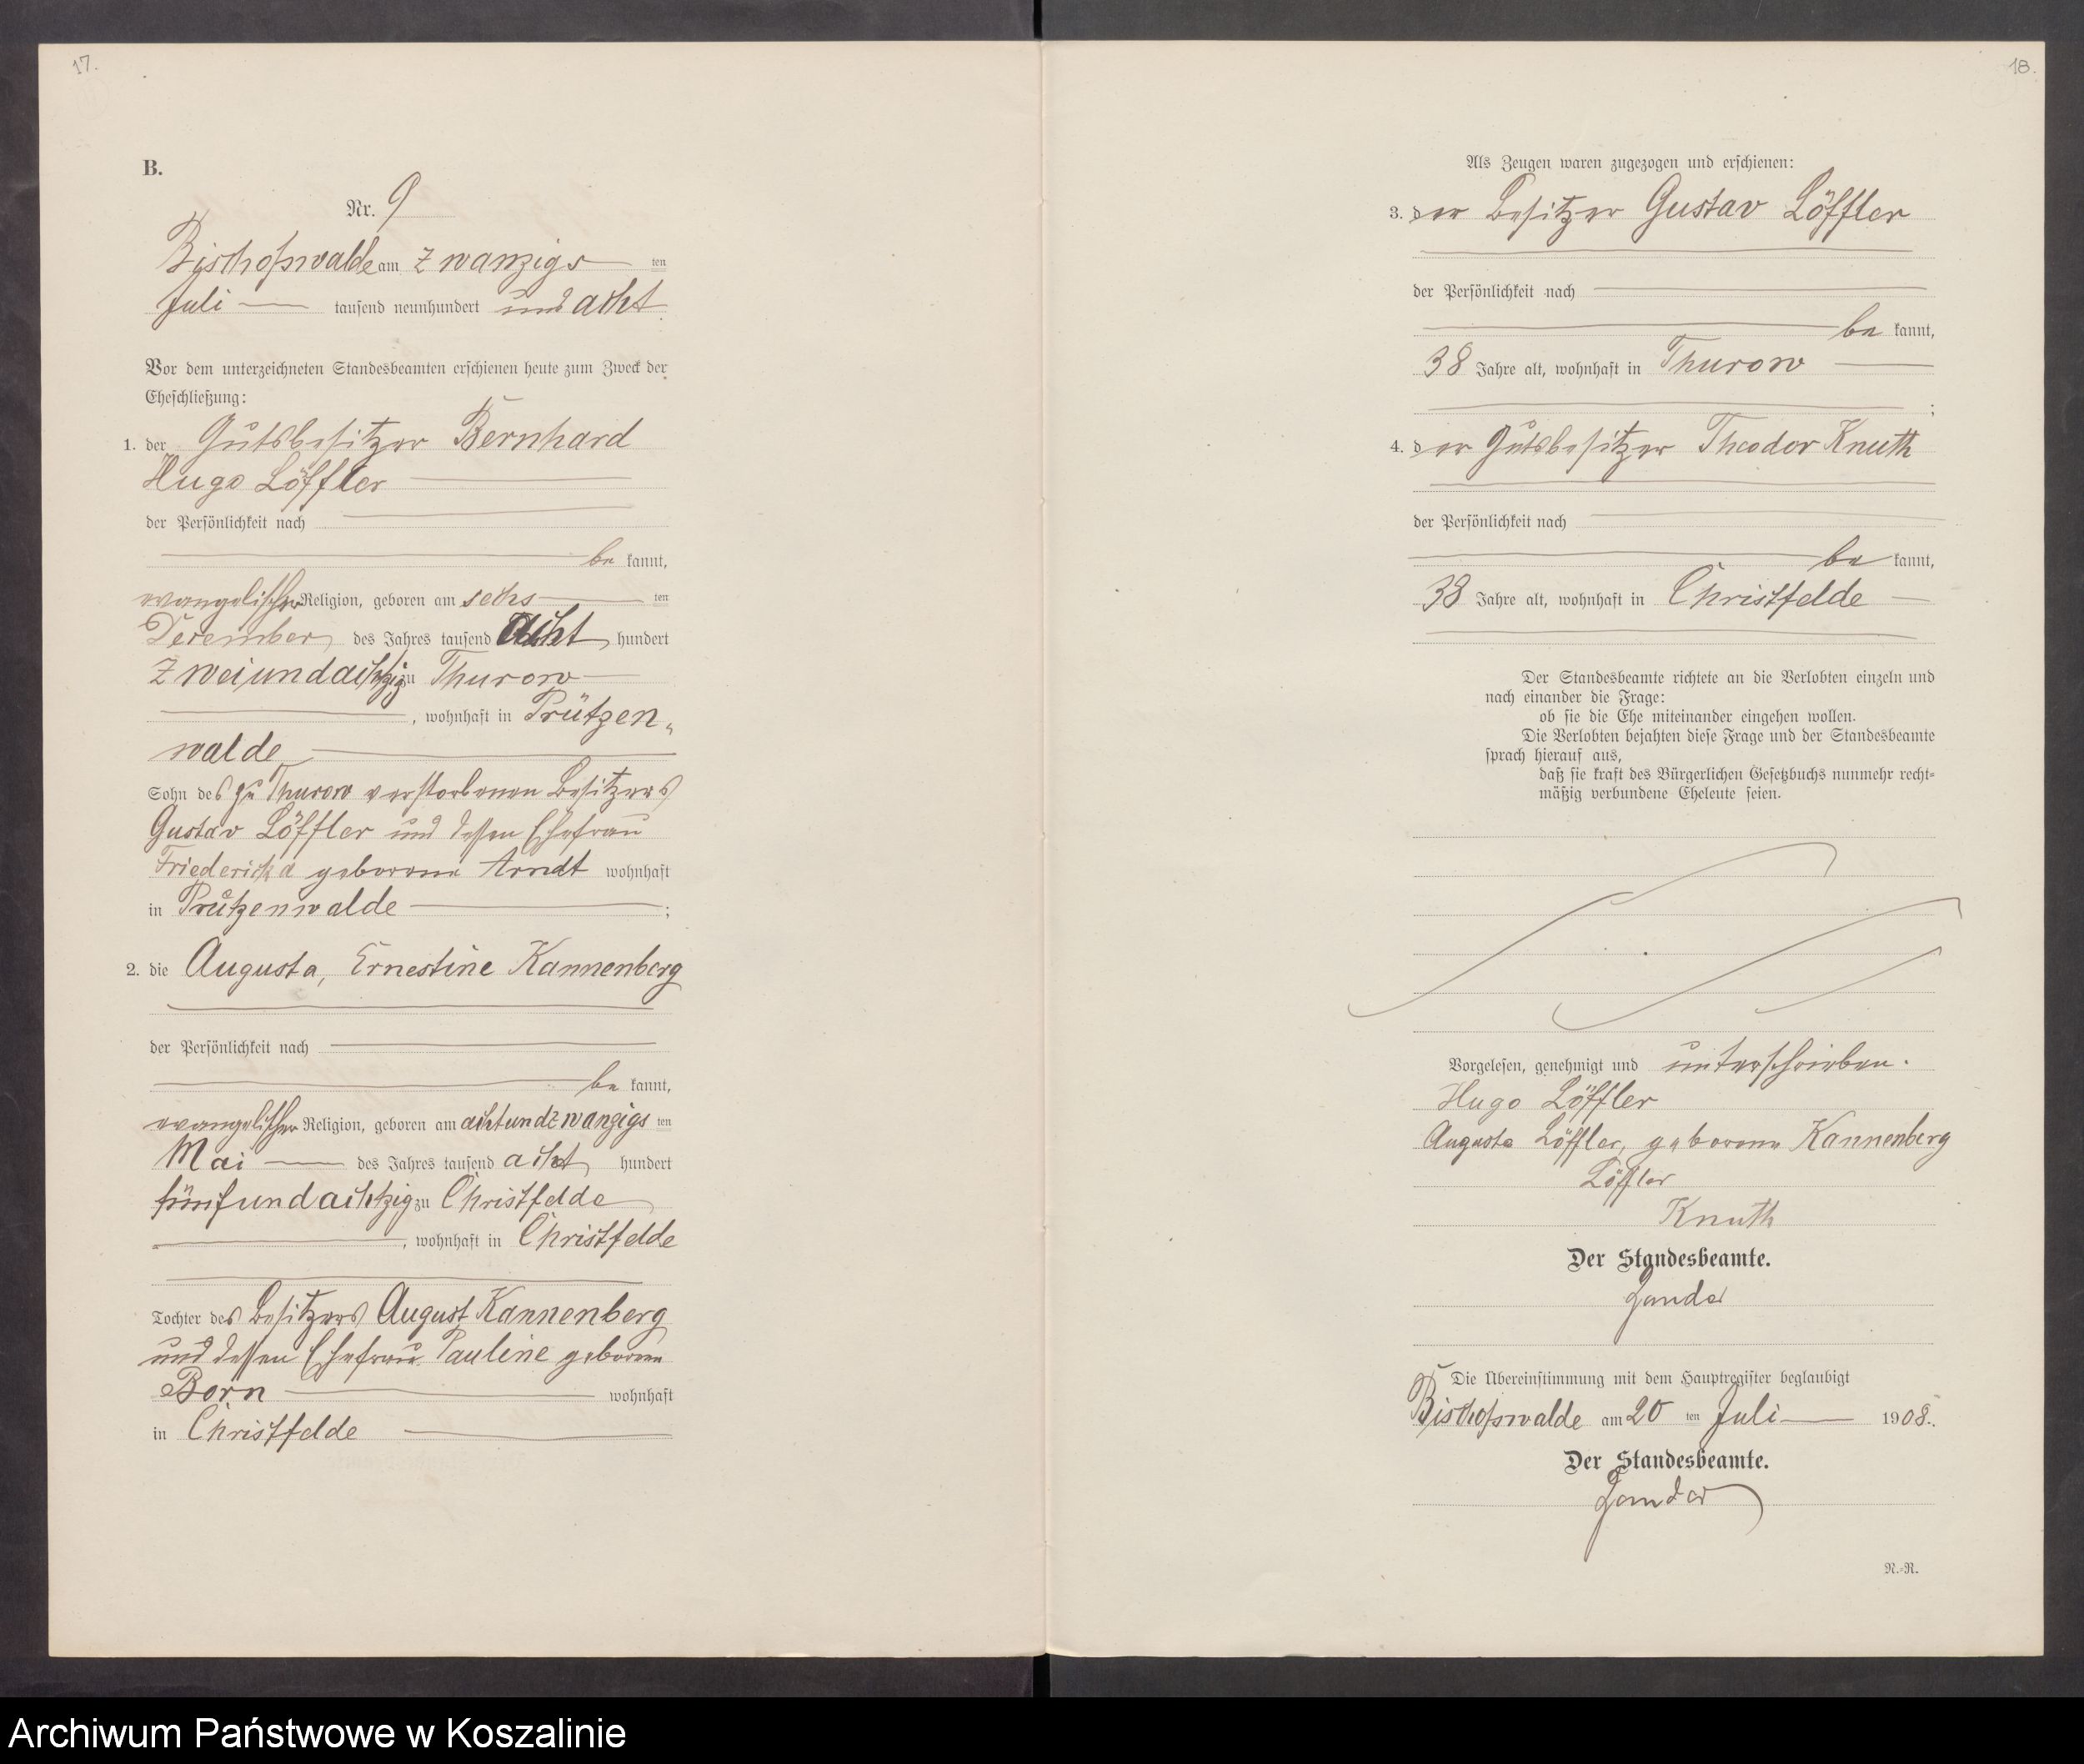 17.
B.
Nr. 9
Bischofswalde am zwanzigs ten
Juli tausend neunhundert und acht
Vor dem unterzeichneten Standesbeamten erschienen heute zum Zweck der
Eheschließung:
1. der Gutsbesitzer Bernhard
Hugo Löffler
der Persönlichkeit nach
be kannt,
evangelischer Religion, geboren am sechs ten
Dezember des Jahres tausend acht hundert
zweiundachtzig zu Thurow
, wohnhaft in Prützen„
walde
Sohn des zu Thurow verstorbenen Besitzers
Gustav Löffler und dessen Ehefrau
Friedericka geborene Arndt wohnhaft
in Prützenwalde ;
2. die Augusta, Ernestine Kannenberg
der Persönlichkeit nach
be kannt,
evangelischer Religion, geboren am achtundzwanzigs ten
Mai des Jahres tausend acht hundert
fünfundachtzig zu Christfelde
, wohnhaft in Christfelde
Tochter des Besitzers August Kannenberg
und dessen Ehefrau Pauline geborene
Born wohnhaft
in Christfelde
18.
Als Zeugen waren zugezogen und erschienen:
3. der Besitzer Gustav Löffler
der Persönlichkeit nach
be kannt,
38 Jahre alt, wohnhaft in Thurow
;
4. der Gutsbesitzer Theodor Knuth
der Persönlichkeit nach
be kannt,
38 Jahre alt, wohnhaft in Christfelde
Der Standesbeamte richtete an die Verlobten einzeln und
nach einander die Frage:
ob sie die Ehe miteinander eingehen wollen.
Die Verlobten bejahten diese Frage und der Standesbeamte
sprach hierauf aus,
daß sie kraft des Bürgerlichen Gesetzbuchs nunmehr recht=
mäßig verbundene Eheleute seien.
Vorgelesen, genehmigt und unterschrieben.
Hugo Löffler
Augusta Löffler, geborene Kannenberg
Löffler
Knuth
Der Standesbeamte.
Zander
Die Übereinstimmung mit dem Hauptregister beglaubigt
Bischofswalde am 20 ten Juli 1908.
Der Standesbeamte.
Zander
N.=R.
Archiwum Państwowe w Koszalinie